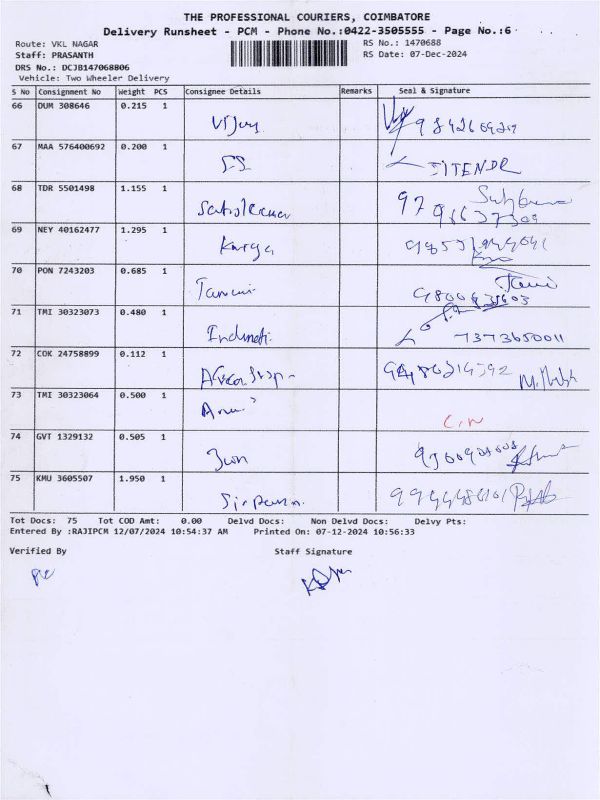 THE PROFESSIONAL COURIERS, COIMBATORE
Delivery Runsheet - PCM - Phone No.:0422-3505555 - Page No.:6
Route: VKL NAGAR RS No.: 1470688
Staff: PRASANTH RS Date: 07-Dec-2024
DRS No.: DCJB147068806
Vehicle: Two Wheeler Delivery
S No Consignment No Weight PCS Consignee Details Remarks Seal & Signature
66 DUM 308646 0.215 1 Vijay
67 MAA 576400692 0.200 1 SS JITENDR
68 TDR 5501498 1.155 1
69 NEY 40162477 1.295 1 Karga
70 PON 7243203 0.685 1
71 TMI 30323073 0.480 1 Indumati 7373650011
72 COK 24758899 0.112 1
73 TMI 30323064 0.500 1
74 GVT 1329132 0.505 1
75 KMU 3605507 1.950 1
Tot Docs: 75 Tot COD Amt: 0.00 Delvd Docs: Non Delvd Docs: Delvy Pts:
Entered By :RAJIPCM 12/07/2024 10:54:37 AM Printed On: 07-12-2024 10:56:33
Verified By Staff Signature